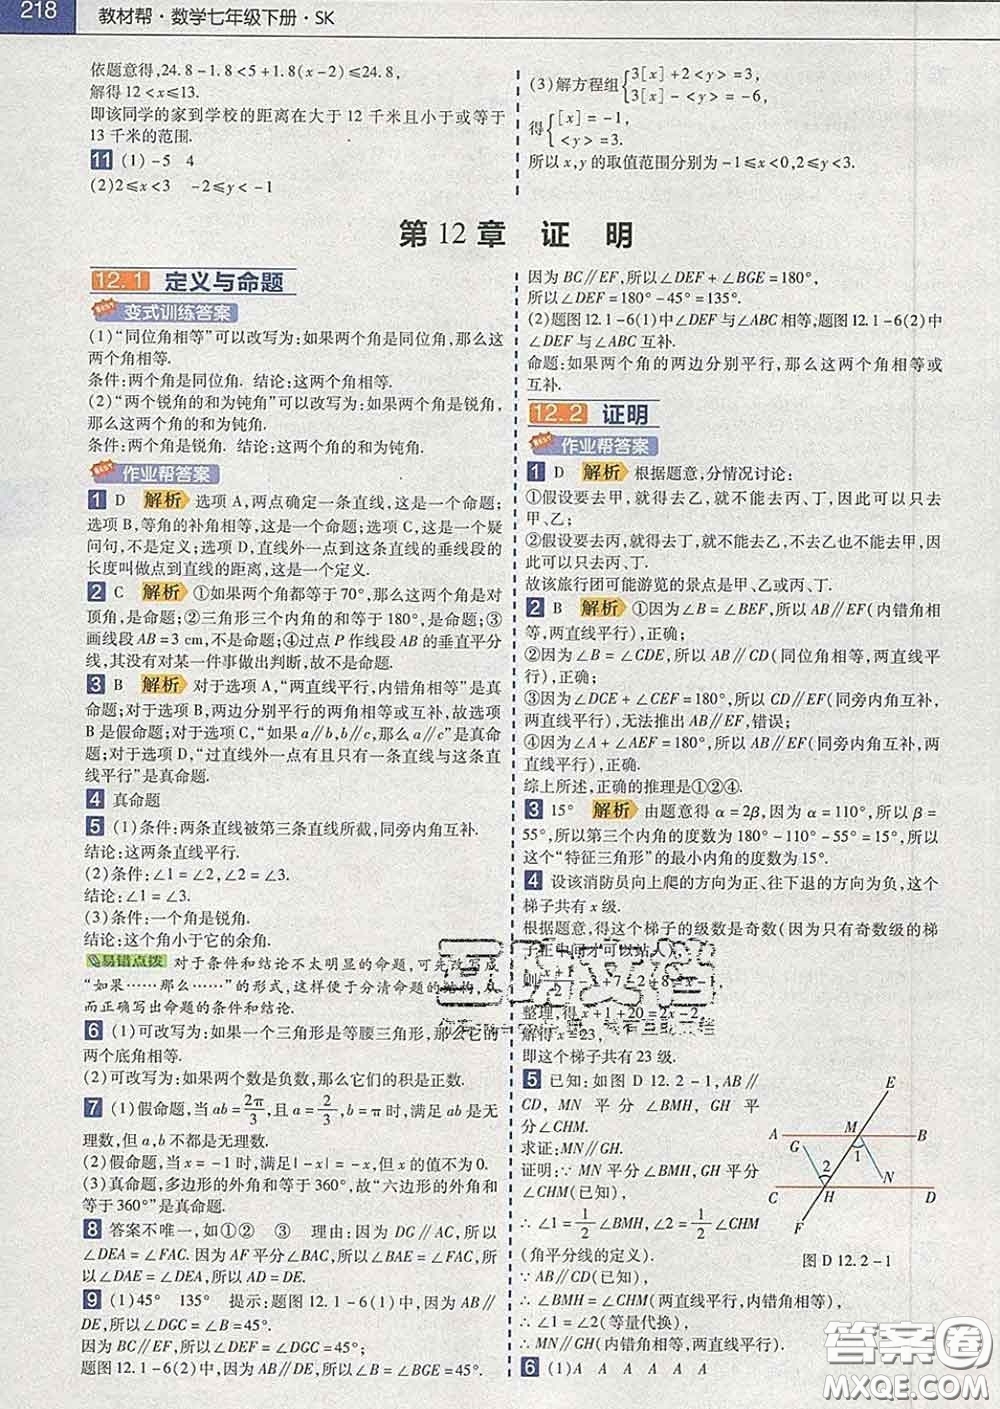 218 教材帮·数学七年级下册·SK
依题意得,24.8-1.8<5+1.8(x-2)≤24.8,
解得12<x≤13.
即该同学的家到学校的距离在大于12千米且小于或等于
13千米的范围.
11 (1)-5 4
(2)2≤x<3 -2≤y<-1
(3)解方程组{3[x]+2<y>=3,
3[x]-<y>=-6,
得{[x]=-1,
<y>=3.
所以x,y的取值范围分别为-1≤x<0,2≤y<3.
第12章 证 明
12.1 定义与命题
变式训练答案
(1)“同位角相等”可以改写为:如果两个角是同位角,那么这
两个角相等.
条件:两个角是同位角. 结论:这两个角相等.
(2)“两个锐角的和为钝角”可以改写为:如果两个角是锐角,
那么这两个角的和为钝角.
条件:两个角是锐角. 结论:这两个角的和为钝角.
作业帮答案
1 D 解析 选项A,两点确定一条直线,这是一个命题;
选项B,等角的补角相等,这是一个命题;选项C,这是一个疑
问句,不是定义;选项D,直线外一点到这条直线的垂线段的
长度叫做点到直线的距离,这是一个定义.
2 C 解析 ①如果两个角都等于70°,那么这两个角是对
顶角,是命题;②三角形三个内角的和等于180°,是命题;③
画线段AB=3 cm,不是命题;④过点P作线段AB的垂直平分
线,其没有对某一件事做出判断,故不是命题.
3 B 解析 对于选项A,“两直线平行,内错角相等”是真
命题;对于选项B,两边分别平行的两角相等或互补,故选项
B是假命题;对于选项C,“如果a∥b,b∥c,那么a∥c”是真命
题;对于选项D,“过直线外一点有且只有一条直线与这条直
线平行”是真命题.
4 真命题
5 (1)条件:两条直线被第三条直线所截,同旁内角互补.
结论:这两条直线平行.
(2)条件:∠1=∠2,∠2=∠3.
结论:∠1=∠3.
(3)条件:一个角是锐角.
结论:这个角小于它的余角.
易错点拨 对于条件和结论不太明显的命题,可先改写成
“如果……那么……”的形式,这样便于分清命题的结构,从
而正确写出命题的条件和结论.
6 (1)可改写为:如果一个三角形是等腰三角形,那么它的
两个底角相等.
(2)可改写为:如果两个数是负数,那么它们的积是正数.
7 (1)假命题,当ab=2π/3,且a=2/3,b=π时,满足ab是无
理数,但a,b不都是无理数.
(2)假命题,当x=-1时,满足|-x|=-x,但x的值不为0.
(3)真命题,多边形的外角和等于360°,故“六边形的外角和
等于360°”是真命题.
8 答案不唯一,如①② ③ 理由:因为DG∥AC,所以
∠DEA=∠FAC. 因为AF平分∠BAC,所以∠BAE=∠FAC,所
以∠DAE=∠DEA,所以AD=DE.
9 (1)45° 135° 提示:题图12.1-6(1)中,因为AB∥
DE,所以∠ABC=∠DGC=45°.
因为BC∥EF,所以∠DEF=∠DGC=45°;
题图12.1-6(2)中,因为AB∥DE,所以∠ABC=∠BGE=45°.
因为BC∥EF,所以∠DEF+∠BGE=180°
所以∠DEF=180°-45°=135°.
(2)题图12.1-6(1)中∠DEF与∠ABC相等;题图12.1-6(2)中
∠DEF与∠ABC互补.
命题:如果两个角的两边分别平行,那么这两个角相等或
互补.
12.2 证明
作业帮答案
1 D 解析 根据题意,分情况讨论:
①假设要去甲,就得去乙,就不能去丙、丁,因此可以只去
甲、乙;
②假设要去丙,就得去丁,就不能去乙,不去乙也不能去甲,因
此可以只去丙、丁.
故该旅行团可能游览的景点是甲、乙或丙、丁.
2 B 解析 ①因为∠B=∠BEF,所以AB∥EF(内错角相
等,两直线平行),正确;
②因为∠B=∠CDE,所以AB∥CD(同位角相等,两直线平
行),正确;
③因为∠DCE+∠CEF=180°,所以CD∥EF(同旁内角互补,
两直线平行),无法推出AB∥EF,错误;
④因为∠A+∠AEF=180°,所以AB∥EF(同旁内角互补,两
直线平行),正确.
综上所述,正确的推理是①②④.
3 15° 解析 由题意得α=2β,因为α=110°,所以β=
55°,所以第三个内角的度数为180°-110°-55°=15°,所以
这个“特征三角形”的最小内角的度数为15°.
4 设该消防员向上爬的方向为正、往下退的方向为负,这个
梯子共有x级.
根据题意,得这个梯子的级数是奇数(因为只有奇数级的梯
子正中间才可以站人),
整理,得x+1+20=2x-2,
解得x=23,
即这个梯子共有23级.
5 已知:如图D 12.2-1,AB∥
CD, MN 平分∠BMH, GH 平
分∠CHM.
求证:MN∥GH.
证明:∵MN平分∠BMH,GH平分
∠CHM(已知),
∴∠1=1/2∠BMH,∠2=1/2∠CHM
(角平分线的定义).
∵AB∥CD(已知),
∴∠BMH=∠CHM(两直线平行,内错角相等),
∴∠1=∠2(等量代换),
∴MN∥GH(内错角相等,两直线平行).
E
A M B
G 1
2 N
C H D
F
图D 12.2-1
6 (1)A A A A A A
答案圈
MXQE.COM